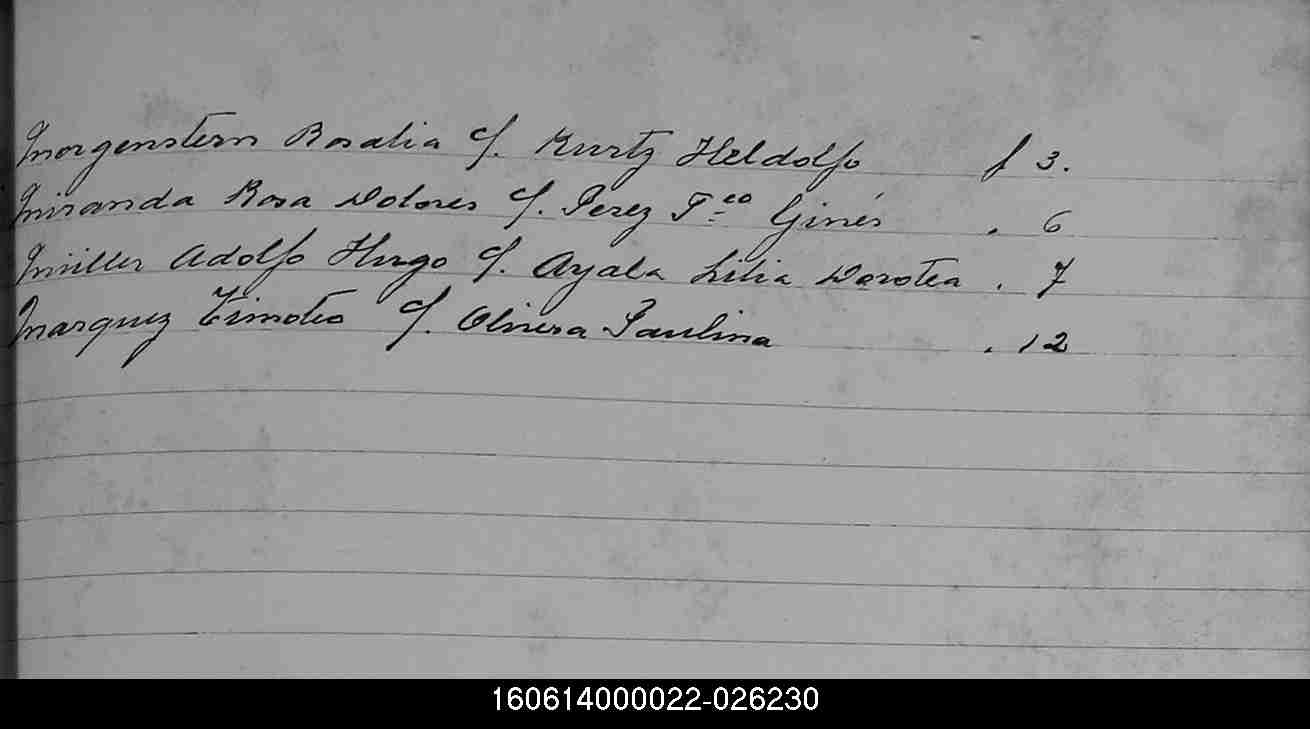 Morgenstern Rosalia c/. Kurtz Heldolfo f 3.
Miranda Rosa Dolores c/. Perez Fco Ginés . 6
Miller Adolfo Hugo c/. Ayala Lilia Dorotea . 7
Marquez Timoteo c/. Olivera Paulina . 12
160614000022-026230